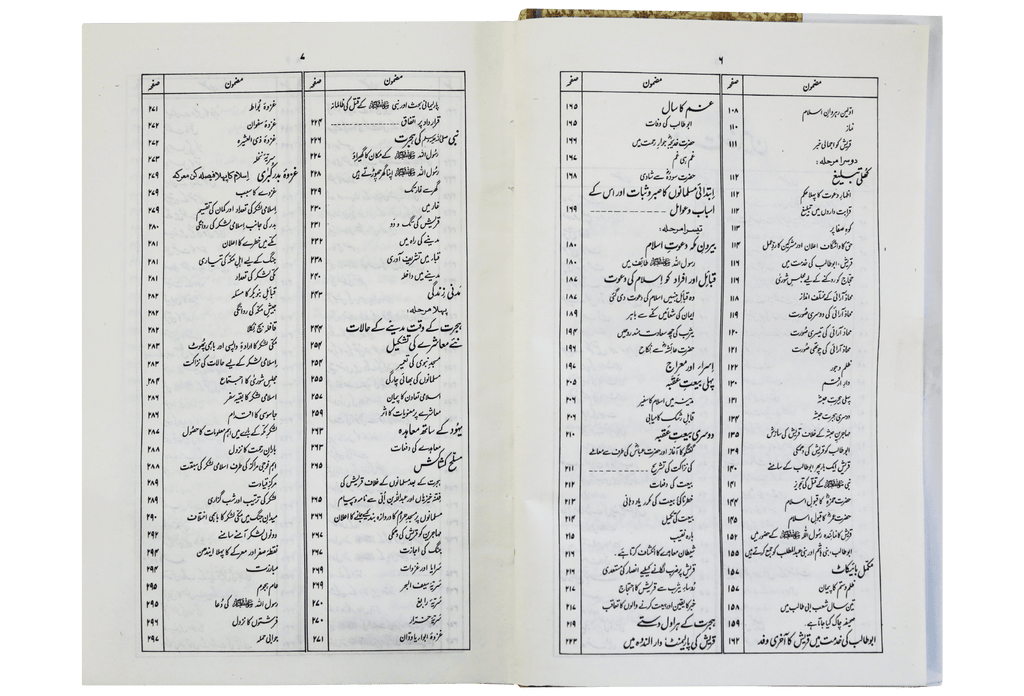 ۶
مضمون صفحہ
اولین رہروانِ اسلام ۱۰۸
نماز ۱۱۰
قریش کو اجمالی خبر ۱۱۱
دوسرا مرحلہ:
کھلی تبلیغ ۱۱۲
اظہارِ دعوت کا پہلا حکم ۱۱۲
قرابت داروں میں تبلیغ ۱۱۲
کوہِ صفا پر ۱۱۳
حق کا واشگاف اعلان اور مشرکین کا ردِّ عمل ۱۱۴
قریش، ابوطالب کی خدمت میں ۱۱۶
حجاج کو روکنے کے لیے مجلسِ شوریٰ ۱۱۶
محاذ آرائی کے مختلف انداز ۱۱۸
محاذ آرائی کی دوسری صورت ۱۱۹
محاذ آرائی کی تیسری صورت ۱۲۰
محاذ آرائی کی چوتھی صورت ۱۲۱
ظلم و جور ۱۲۲
دارِ ارقم ۱۳۰
پہلی ہجرتِ حبشہ ۱۳۱
دوسری ہجرتِ حبشہ ۱۳۴
مہاجرینِ حبشہ کے خلاف قریش کی سازش ۱۳۵
ابوطالب کو قریش کی دھمکی ۱۳۹
قریش ایک بار پھر ابوطالب کے سامنے ۱۴۰
نبی ﷺ کے قتل کی تجویز ۱۴۱
حضرت حمزہؓ کا قبولِ اسلام ۱۴۴
حضرت عمرؓ کا قبولِ اسلام ۱۴۵
قریش کا نمائندہ رسول اللہ ﷺ کے حضور میں ۱۵۲
ابوطالب، بنی ہاشم اور بنی عبدالمطلب کو جمع کرتے ہیں ۱۵۵
مکمل بائیکاٹ ۱۵۷
ظلم و ستم کا پیمان ۱۵۷
تین سال شعبِ ابی طالب میں ۱۵۸
صحیفہ چاک کیا جاتا ہے ۱۵۹
ابوطالب کی خدمت میں قریش کا آخری وفد ۱۶۲
مضمون صفحہ
غم کا سال ۱۶۵
ابوطالب کی وفات ۱۶۵
حضرت خدیجہؓ جوارِ رحمت میں ۱۶۶
غم ہی غم ۱۶۷
حضرت سودہؓ سے شادی ۱۶۸
ابتدائی مسلمانوں کا صبر و ثبات اور اس کے
اسباب و عوامل ۱۶۹
تیسرا مرحلہ:
بیرونِ مکہ دعوتِ اسلام ۱۸۰
رسول اللہ ﷺ طائف میں ۱۸۰
قبائل اور افراد کو اسلام کی دعوت ۱۸۷
وہ قبائل جنہیں اسلام کی دعوت دی گئی ۱۸۷
ایمان کی شعاعیں مکے سے باہر ۱۸۹
یثرب کی چھ سعادت مند روحیں ۱۹۴
حضرت عائشہؓ سے نکاح ۱۹۶
اسراء اور معراج ۱۹۷
پہلی بیعتِ عقبہ ۲۰۵
مدینہ میں اسلام کا سفیر ۲۰۶
قابلِ رشک کامیابی ۲۰۶
دوسری بیعتِ عقبہ ۲۱۰
گفتگو کا آغاز اور حضرت عباسؓ کی طرف سے معاملے
کی نزاکت کی تشریح ۲۱۱
بیعت کی دفعات ۲۱۲
خطرناکی بیعت کی مکرر یاد دہانی ۲۱۳
بیعت کی تکمیل ۲۱۴
بارہ نقیب ۲۱۵
شیطان معاہدے کا انکشاف کرتا ہے ۲۱۶
قریش پر ضرب لگانے کیلئے انصار کی مستعدی ۲۱۶
رؤساء یثرب سے قریش کا احتجاج ۲۱۷
خبر کا یقین اور بیعت کرنے والوں کا تعاقب ۲۱۷
ہجرت کے ہراول دستے ۲۱۹
قریش کی پارلیمنٹ دار الندوہ میں ۲۲۳
۷
مضمون صفحہ
پارلیمانی بحث اور نبی ﷺ کے قتل کی ظالمانہ
قرارداد پر اتفاق ۲۲۴
نبی ﷺ کی ہجرت ۲۲۶
رسول اللہ ﷺ کے مکان کا گھیراؤ ۲۲۷
رسول اللہ ﷺ اپنا گھر چھوڑتے ہیں ۲۲۸
گھر سے غار تک ۲۲۹
غار میں ۲۳۰
قریش کی تگ و دَو ۲۳۱
مدینے کی راہ میں ۲۳۲
قباء میں تشریف آوری ۲۳۸
مدینے میں داخلہ ۲۴۰
مدنی زندگی ۲۴۳
پہلا مرحلہ:
ہجرت کے وقت مدینے کے حالات ۲۴۴
نئے معاشرے کی تشکیل ۲۵۴
مسجدِ نبوی کی تعمیر ۲۵۴
مسلمانوں کی بھائی چارگی ۲۵۵
اسلامی تعاون کا پیمان ۲۵۷
معاشرے پر معنویات کا اثر ۲۵۹
یہود کے ساتھ معاہدہ ۲۶۳
معاہدے کی دفعات ۲۶۳
مسلح کشاکش ۲۶۵
ہجرت کے بعد مسلمانوں کے خلاف قریش کی
فتنہ خیزیاں اور عبداللہ بن اُبی سے نامہ و پیام ۲۶۵
مسلمانوں پر مسجدِ حرام کا دروازہ بند کیے جانے کا اعلان ۲۶۶
مہاجرین کو قریش کی دھمکی ۲۶۷
جنگ کی اجازت ۲۶۷
سرایا اور غزوات ۲۶۹
سریہ سیف البحر ۲۶۹
سریہ رابغ ۲۷۰
سریہ خرار ۲۷۰
غزوہ ابواء یا ودان ۲۷۱
مضمون صفحہ
غزوہ بُواط ۲۷۱
غزوہ سفوان ۲۷۲
غزوہ ذی العشیرہ ۲۷۲
سریہ نخلہ ۲۷۳
غزوہ بدر کبریٰ اسلام کا پہلا فیصلہ کن معرکہ ۲۷۸
غزوے کا سبب ۲۷۹
اسلامی لشکر کی تعداد اور کمان کی تقسیم ۲۷۹
بدر کی جانب اسلامی لشکر کی روانگی ۲۸۰
مکے میں خطرے کا اعلان ۲۸۱
جنگ کے لیے اہلِ مکہ کی تیاری ۲۸۱
مکی لشکر کی تعداد ۲۸۱
قبائل بنوبکر کا مسئلہ ۲۸۲
جیشِ مکہ کی روانگی ۲۸۲
قافلہ بچ نکلا ۲۸۲
مکی لشکر کا ارادہ واپسی اور باہمی پھوٹ ۲۸۳
اسلامی لشکر کے لیے حالات کی نزاکت ۲۸۳
مجلسِ شوریٰ کا اجتماع ۲۸۴
اسلامی لشکر کا بقیہ سفر ۲۸۶
جاسوسی کا اقدام ۲۸۶
لشکرِ مکہ کے بارے میں اہم معلومات کا حصول ۲۸۷
بارانِ رحمت کا نزول ۲۸۸
اہم فوجی مراکز کی طرف اسلامی لشکر کی سبقت ۲۸۸
مرکزِ قیادت ۲۸۹
لشکر کی ترتیب اور شب گزاری ۲۸۹
میدانِ جنگ میں مکی لشکر کا باہمی اختلاف ۲۹۰
دونوں لشکر آمنے سامنے ۲۹۲
نقطہ صفر اور معرکے کا پہلا ایندھن ۲۹۴
مبارزت ۲۹۴
عام ہجوم ۲۹۵
رسول اللہ ﷺ کی دُعا ۲۹۵
فرشتوں کا نزول ۲۹۶
جوابی حملہ ۲۹۷